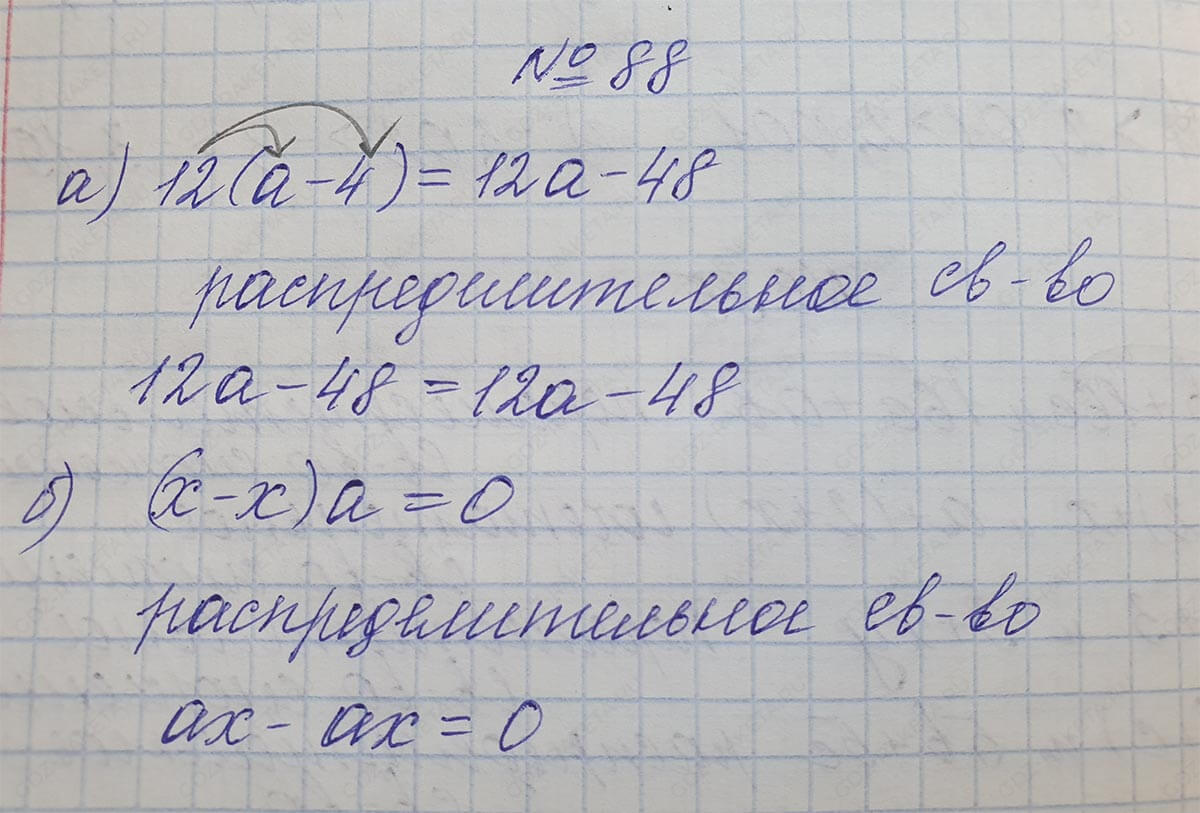 № 88
а) 12(а-4)= 12а-48
распределительное св-во
12а-48=12а-48
б) (х-х)а=0
распределительное св-во
ах- ах=0